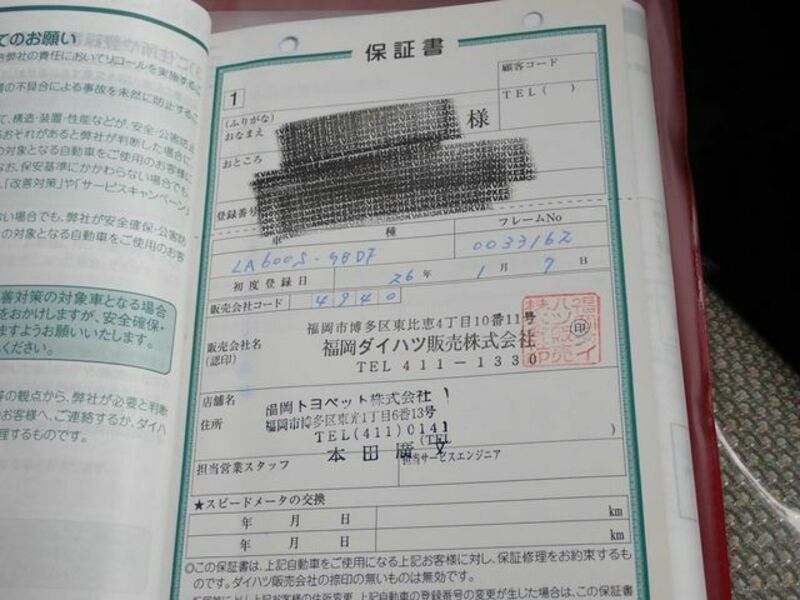 てのお願い
き弊社の責任においてリコールを実施するこ
の不具合による事故を未然に防止するこ
て、構造・装置・性能などが、安全・公害防止
るおそれがあると弊社が判断した場合に
の対象となる自動車をご使用のお客様に
なお、保安基準にかかわらない場合でも、
、「改善対策」や「サービスキャンペーン」
ない場合でも、弊社が安全確保・公害防
の対象となる自動車をご使用のお客
善対策の対象車となる場合
をおかけしますが、安全確保・
ますようお願いいたします。
ください。
等の観点から、弊社が必要と判断
のお客様へ、ご連絡するか、ダイハ
理するものです。
保証書
顧客コード
1
TEL( )
(ふりがな)
おなまえ
様
おところ
登録番号
車 種
フレームNo
LA600S-GBDF
0033162
初度登録日 26年 1月 7日
販売会社コード 4940
福岡市博多区東比恵4丁目10番11号
販売会社名
(認印)
福岡ダイハツ販売株式会社
印
TEL 411-1330
店舗名
福岡トヨペット株式会社
住所
福岡市博多区東光1丁目6番13号
TEL(411)0141
(TEL )
本田 廣文
担当営業スタッフ
担当サービスエンジニア
★スピードメータの交換
年 月 日 km
年 月 日 km
◎この保証書は、上記自動車をご使用になる上記お客様に対し、保証修理をお約束するも
のです。ダイハツ販売会社の捺印の無いものは無効です。
上記お客様の住所変更、上記自動車の登録番号の変更が生じた場合は、この保証書